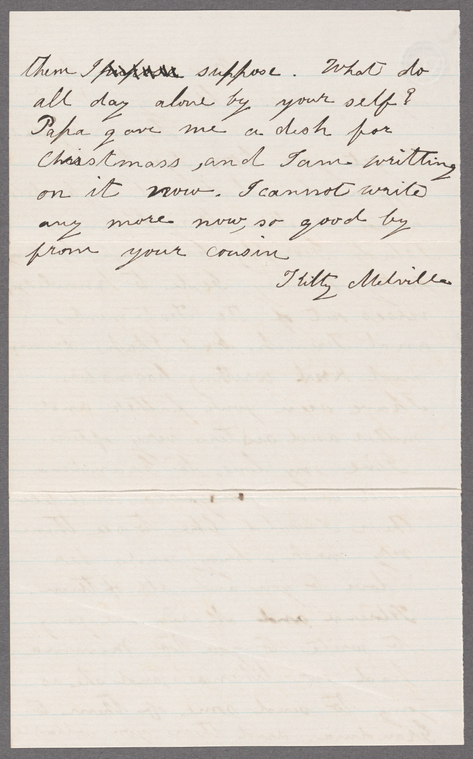 them I suppose. What do
all day alone by your self?
Papa gave me a desk for
Christmass, and I am writting
on it now. I cannot write
any more now, so good by
from your cousin
Kitty Melville